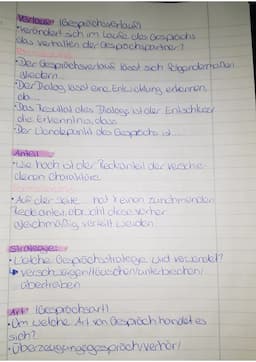 Verlauf (Gesprächsverlauf)
• Verändert sich im Laufe des Gesprächs
das Verhalten der Gesprächspartner?
• Der Gesprächsverlauf lässt sich folgendermaßen
gliedern...
• Der Dialog lässt eine Entwicklung erkennen,
da...
• Das Resultat des Dialogs ist der Entschluss/
die Erkenntnis, dass
• Der Wendepunkt des Gesprächs ist...
Anteil
• Wie hoch ist der Redeanteil der verschie-
denen Charaktäre
• Auf der Seite ... hat X einen zunehmenden
Redeanteil, obwohl diese vorher
gleichmäßig verteilt werden
Strategie:
• Welche Gesprächsstrategie wird verwendet?
↳ verschweigen/täuschen/unterbrechen/
übertreiben
Art (Gesprächsart)
• Um welche Art von Gespräch handelt es
sich?
• Überzeugungsgespräch/Verhör/